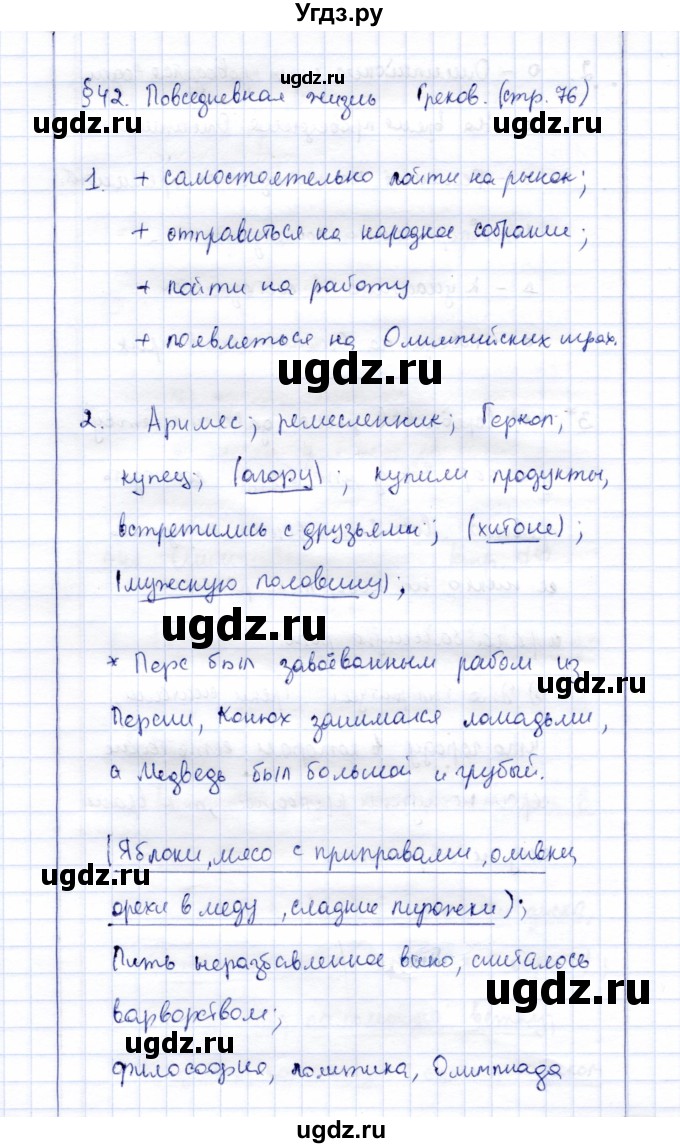 Угдз.ру
§42. Повседневная жизнь Греков. (стр. 76)
1. + самостоятельно пойти на рынок;
+ отправиться на народное собрание;
+ пойти на работу
+ появляться на Олимпийских играх.
2. Аримес; ремесленник; Геркоп;
купец; (агору); купили продукты,
встретились с друзьями; (хитоне);
(мужскую половину);
* Перс был завоёванным рабом из
Персии, Конюх занимался лошадьми,
а Медведь был большой и грубый.
(Яблоки, мясо с приправами, оливки,
орехи в меду, сладкие пирожки);
Пить неразбавленное вино, считалось
варворством;
философия, политика, Олимпиада
ugdz.ru
ugdz.ru
ugdz.ru
ugdz.ru
ugdz.ru
ugdz.ru
ugdz.ru
ugdz.ru
ugdz.ru
ugdz.ru
ugdz.ru
ugdz.ru
ugdz.ru